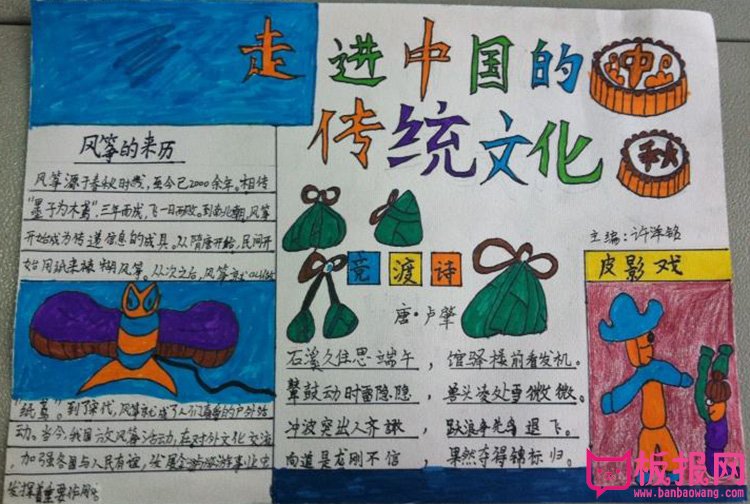 走进中国的
传统文化
风筝的来历
风筝源于春秋时代,至今已2000余年。相传
"墨子为木鸢",三年而成,飞一日而败。到南北朝,风筝
开始成为传递信息的工具。从隋唐开始,民间开
始用纸来裱糊风筝。从次之后,风筝
"纸鸢"。到了宋代,风筝就成了人们喜爱的户外活
动。当今,我国放风筝活动,在对外文化交流
,加强各国与人民友谊,发展旅游事业中
发挥着重要作用。
竞渡诗
唐·卢肇
石溪久住思端午,馆驿楼前看发机。
鼙鼓动时雷隐隐,兽头凌处雪微微。
冲波突出人齐譀,跃浪争先鸟退飞。
向道是龙刚不信,果然夺得锦标归。
主编:许
皮影戏
板报网
www.banbaowang.com